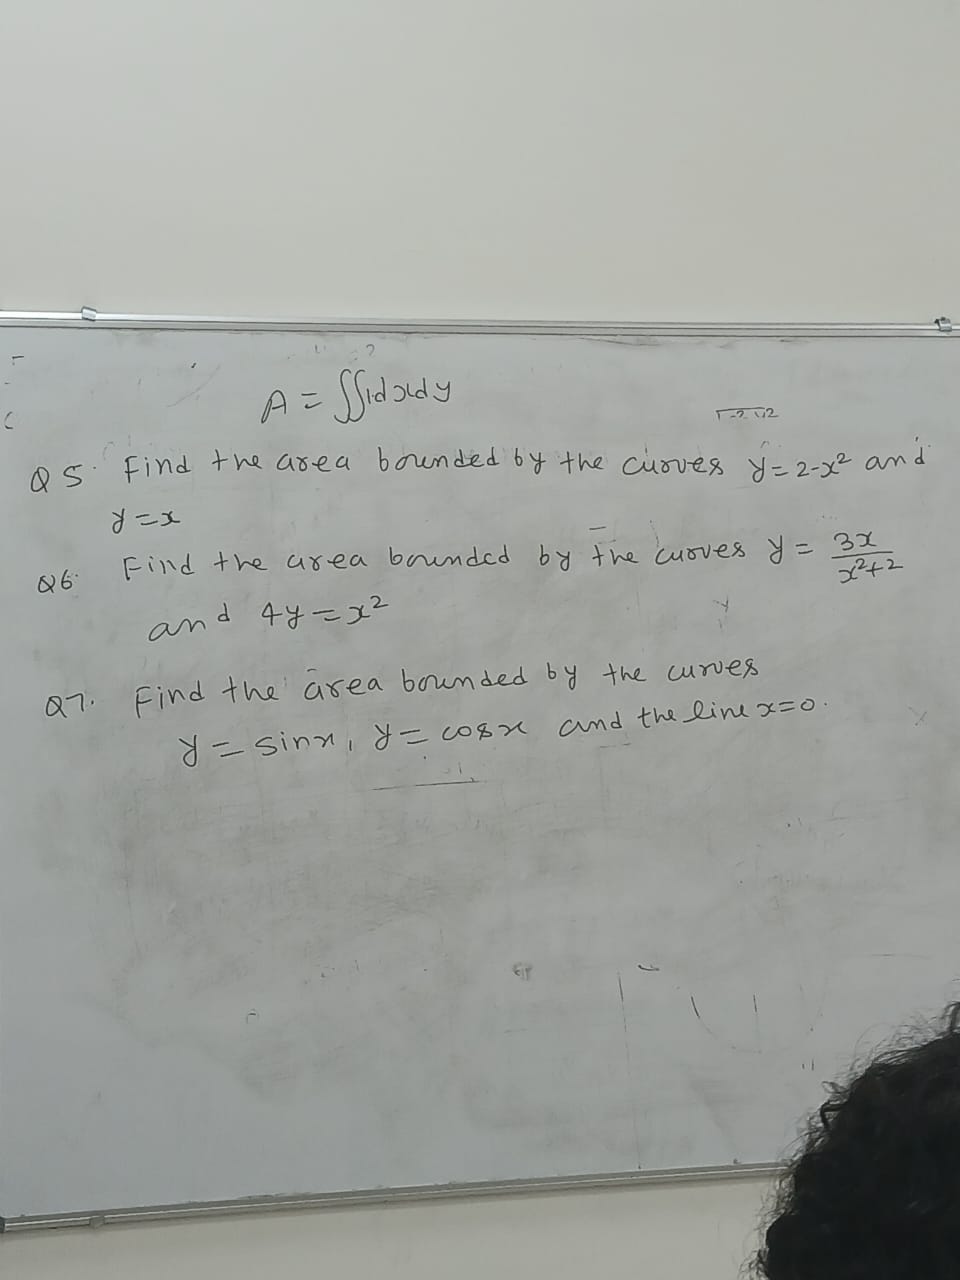 A = ∬1dxdy
Q5. Find the area bounded by the curves y=2-x² and
y=x
Q6. Find the area bounded by the curves y = 3x/(x²+2)
and 4y=x²
Q7. Find the area bounded by the curves
y = sinx, y = cosx and the line x=0.